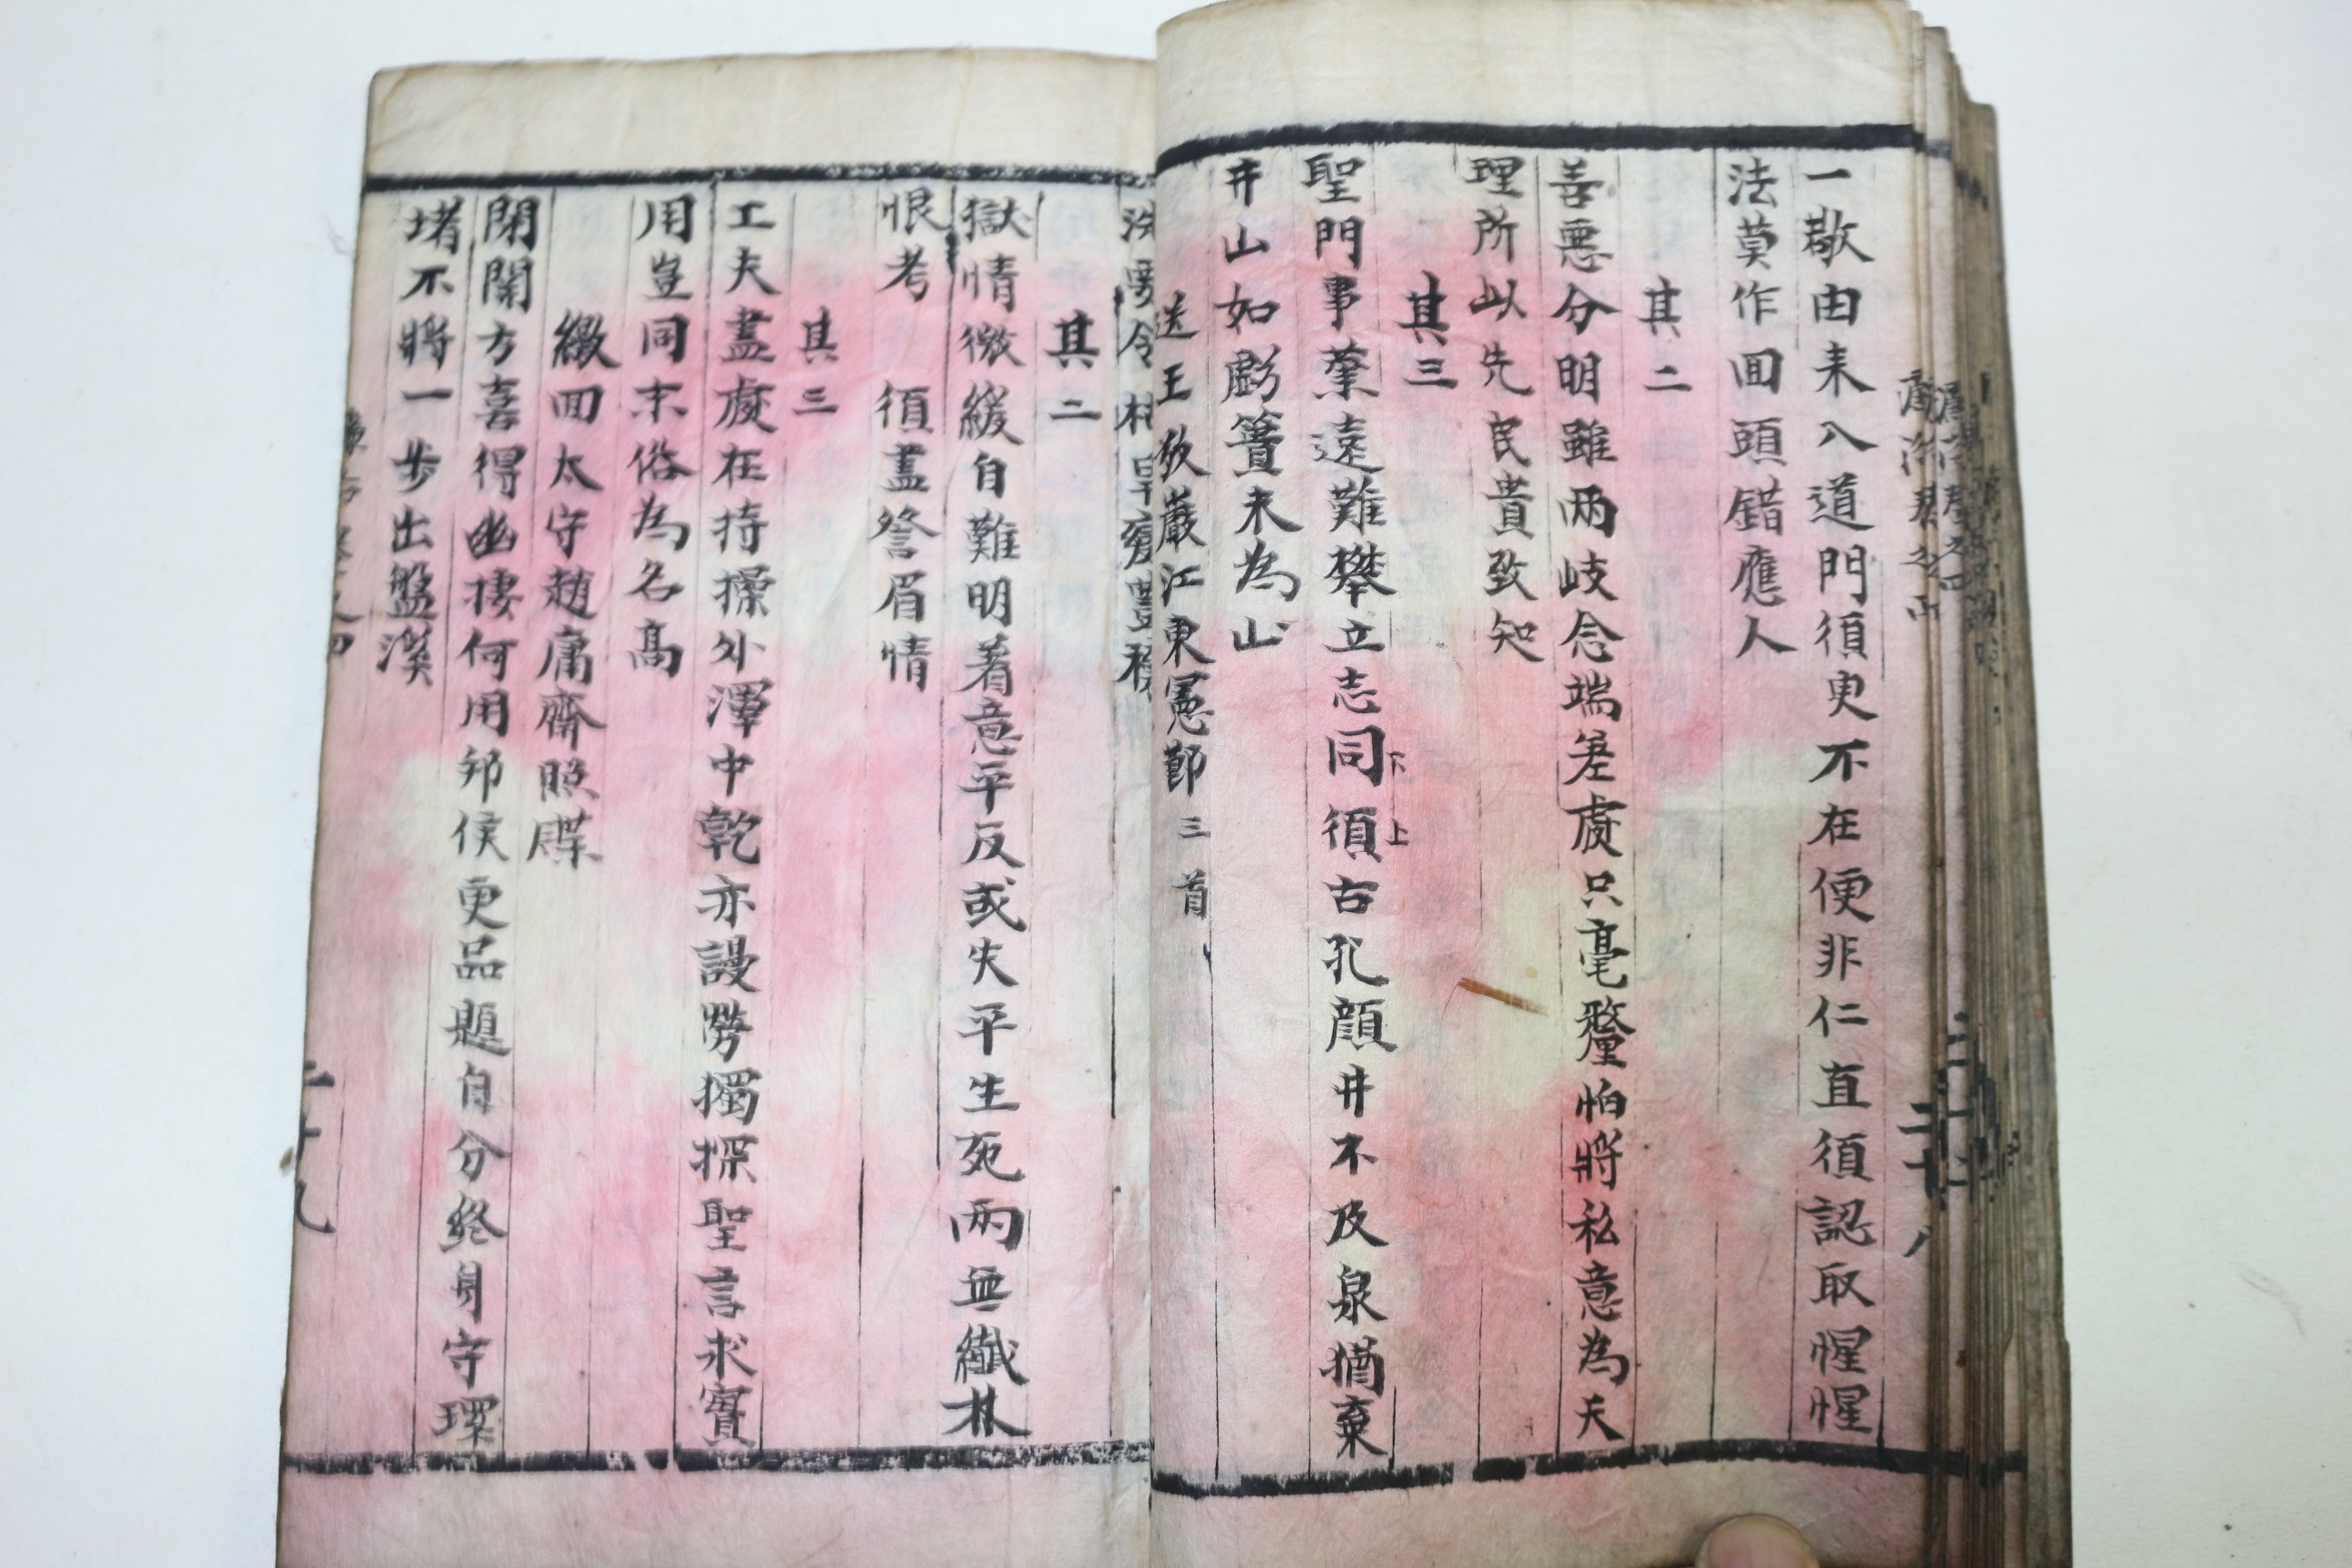 一敬由来入道門須更不在便非仁直須認取惺惺
法莫作回頭錯應人
其二
善惡分明雖兩歧念端差處只毫釐怕將私意為天
理所以先民貴致知
其三
聖門事業遠難攀立志同須古孔顔井不及泉猶棄
下上
井山如虧簣未為山
送王敬巖江東憲節三首
令
其二
獄情微緩自難明著意平反或失平生死兩無纖林
恨考須盡詧眉情
其三
工夫盡處在持操外澤中乾亦謾勞獨探聖言求實
用豈同末俗為名高
繳回太守趙庸齋照牒
閉關方喜得幽棲何用邦侯更品題自分終身守環
堵不將一步出盤溪
二十八
二十九